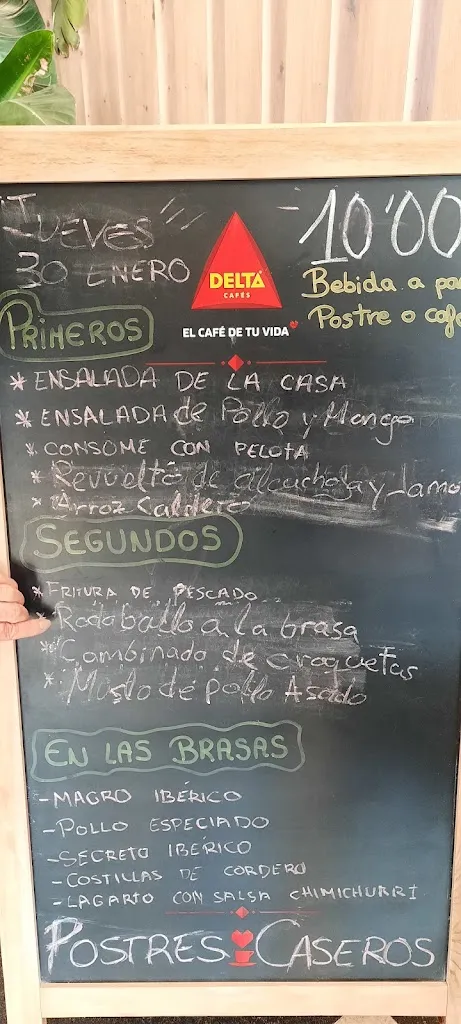 JUEVES
30 ENERO
10'00
DELTA
CAFÉS
EL CAFÉ DE TU VIDA
Bebida a
Postre o café
PRIMEROS
* ENSALADA DE LA CASA
* ENSALADA de Pollo y Mango
* CONSOME CON PELOTA
* Revuelto de alcachofa y Jamo
* Arroz Caldero
SEGUNDOS
* FRITURA DE PESCADO
* Rodaballo a la brasa
* Combinado de croquetas
* Muslo de pollo Asado
EN LAS BRASAS
- MAGRO IBÉRICO
- POLLO ESPECIADO
- SECRETO IBÉRICO
- COSTILLAS DE CORDERO
- LAGARTO CON SALSA CHIMICHURRI
POSTRES CASEROS